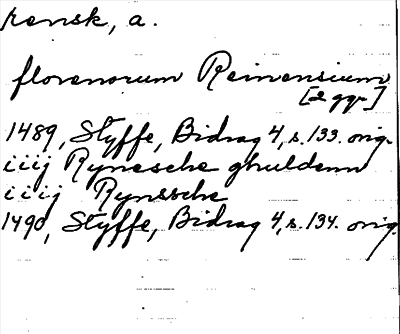 rensk, a.
florenorum Reinensium
[2 ggr]
1489, Styffe, Bidrag 4, s. 133. orig.
iiij Rynesche ghuldenn
iiij Rynssche
1490, Styffe, Bidrag 4, s. 134. orig.